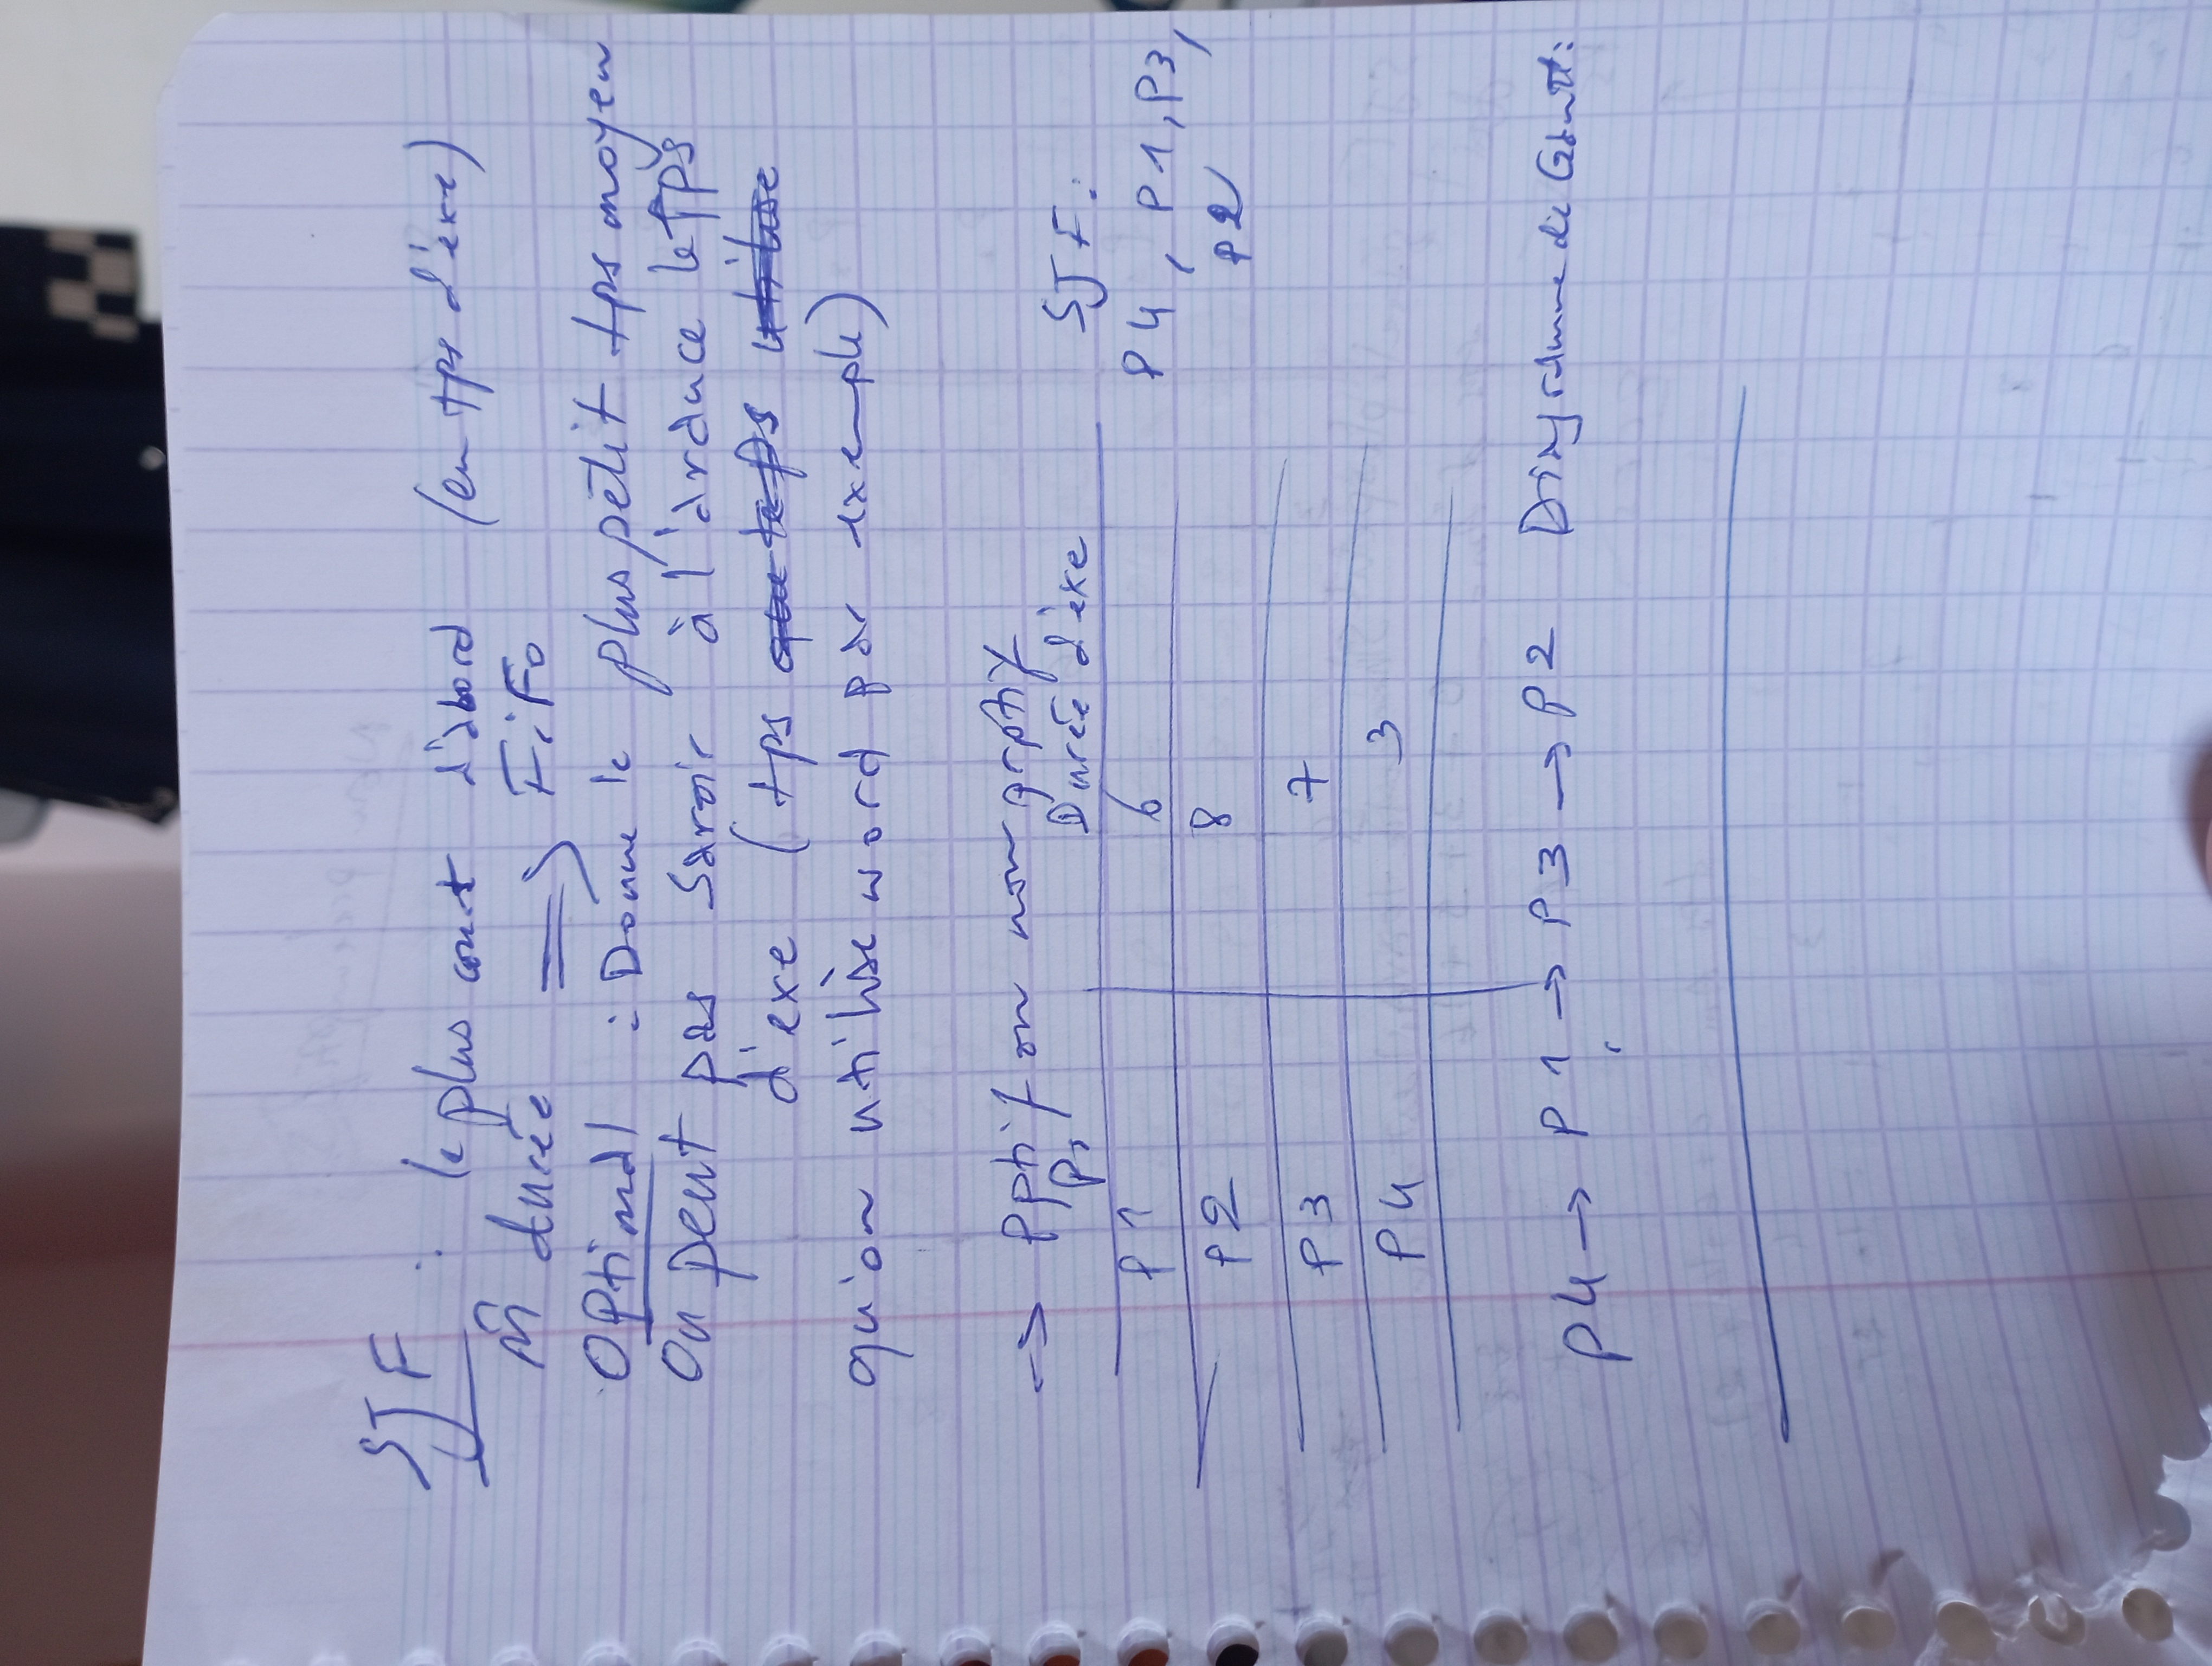 SJF : le plus court d'abord (en tps d'exe)
m̂ durée => FiFo
Optimal : Donne le plus petit tps moyen
On peut pas savoir à l'avance le tps
d'exe (tps que le ps utilise
qu'on utilise word par exemple)
-> pptif ou non prptif
Ps Durée d'exe SJF :
P1 6 P4, P1, P3,
P2 8 P2
P3 7
P4 3
P4 -> P1 -> P3 -> P2 Diagramme de Gantt :